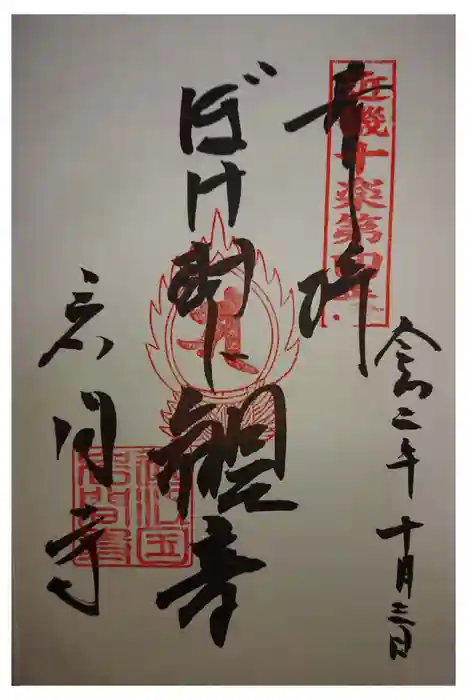 近畿十楽第四番
奉拝
令和二年十月三日
ぼけ封じ観音